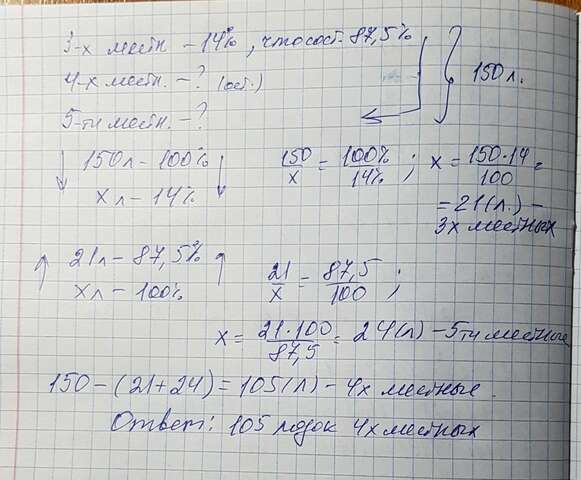 3-х местн - 14%, что сост. 87,5%
4-х местн. - ? (ост.)
150 л.
5-ти местн. - ?
150 л - 100%
х л - 14%
150/х = 100%/14% ; х = 150·14/100 =
= 21 (л.) -
3х местных
21 л - 87,5%
х л - 100%
21/х = 87,5/100 ;
х = 21·100/87,5 = 24 (л) - 5ти местные
150 - (21 + 24) = 105 (л) - 4х местные.
Ответ: 105 лодок 4х местных